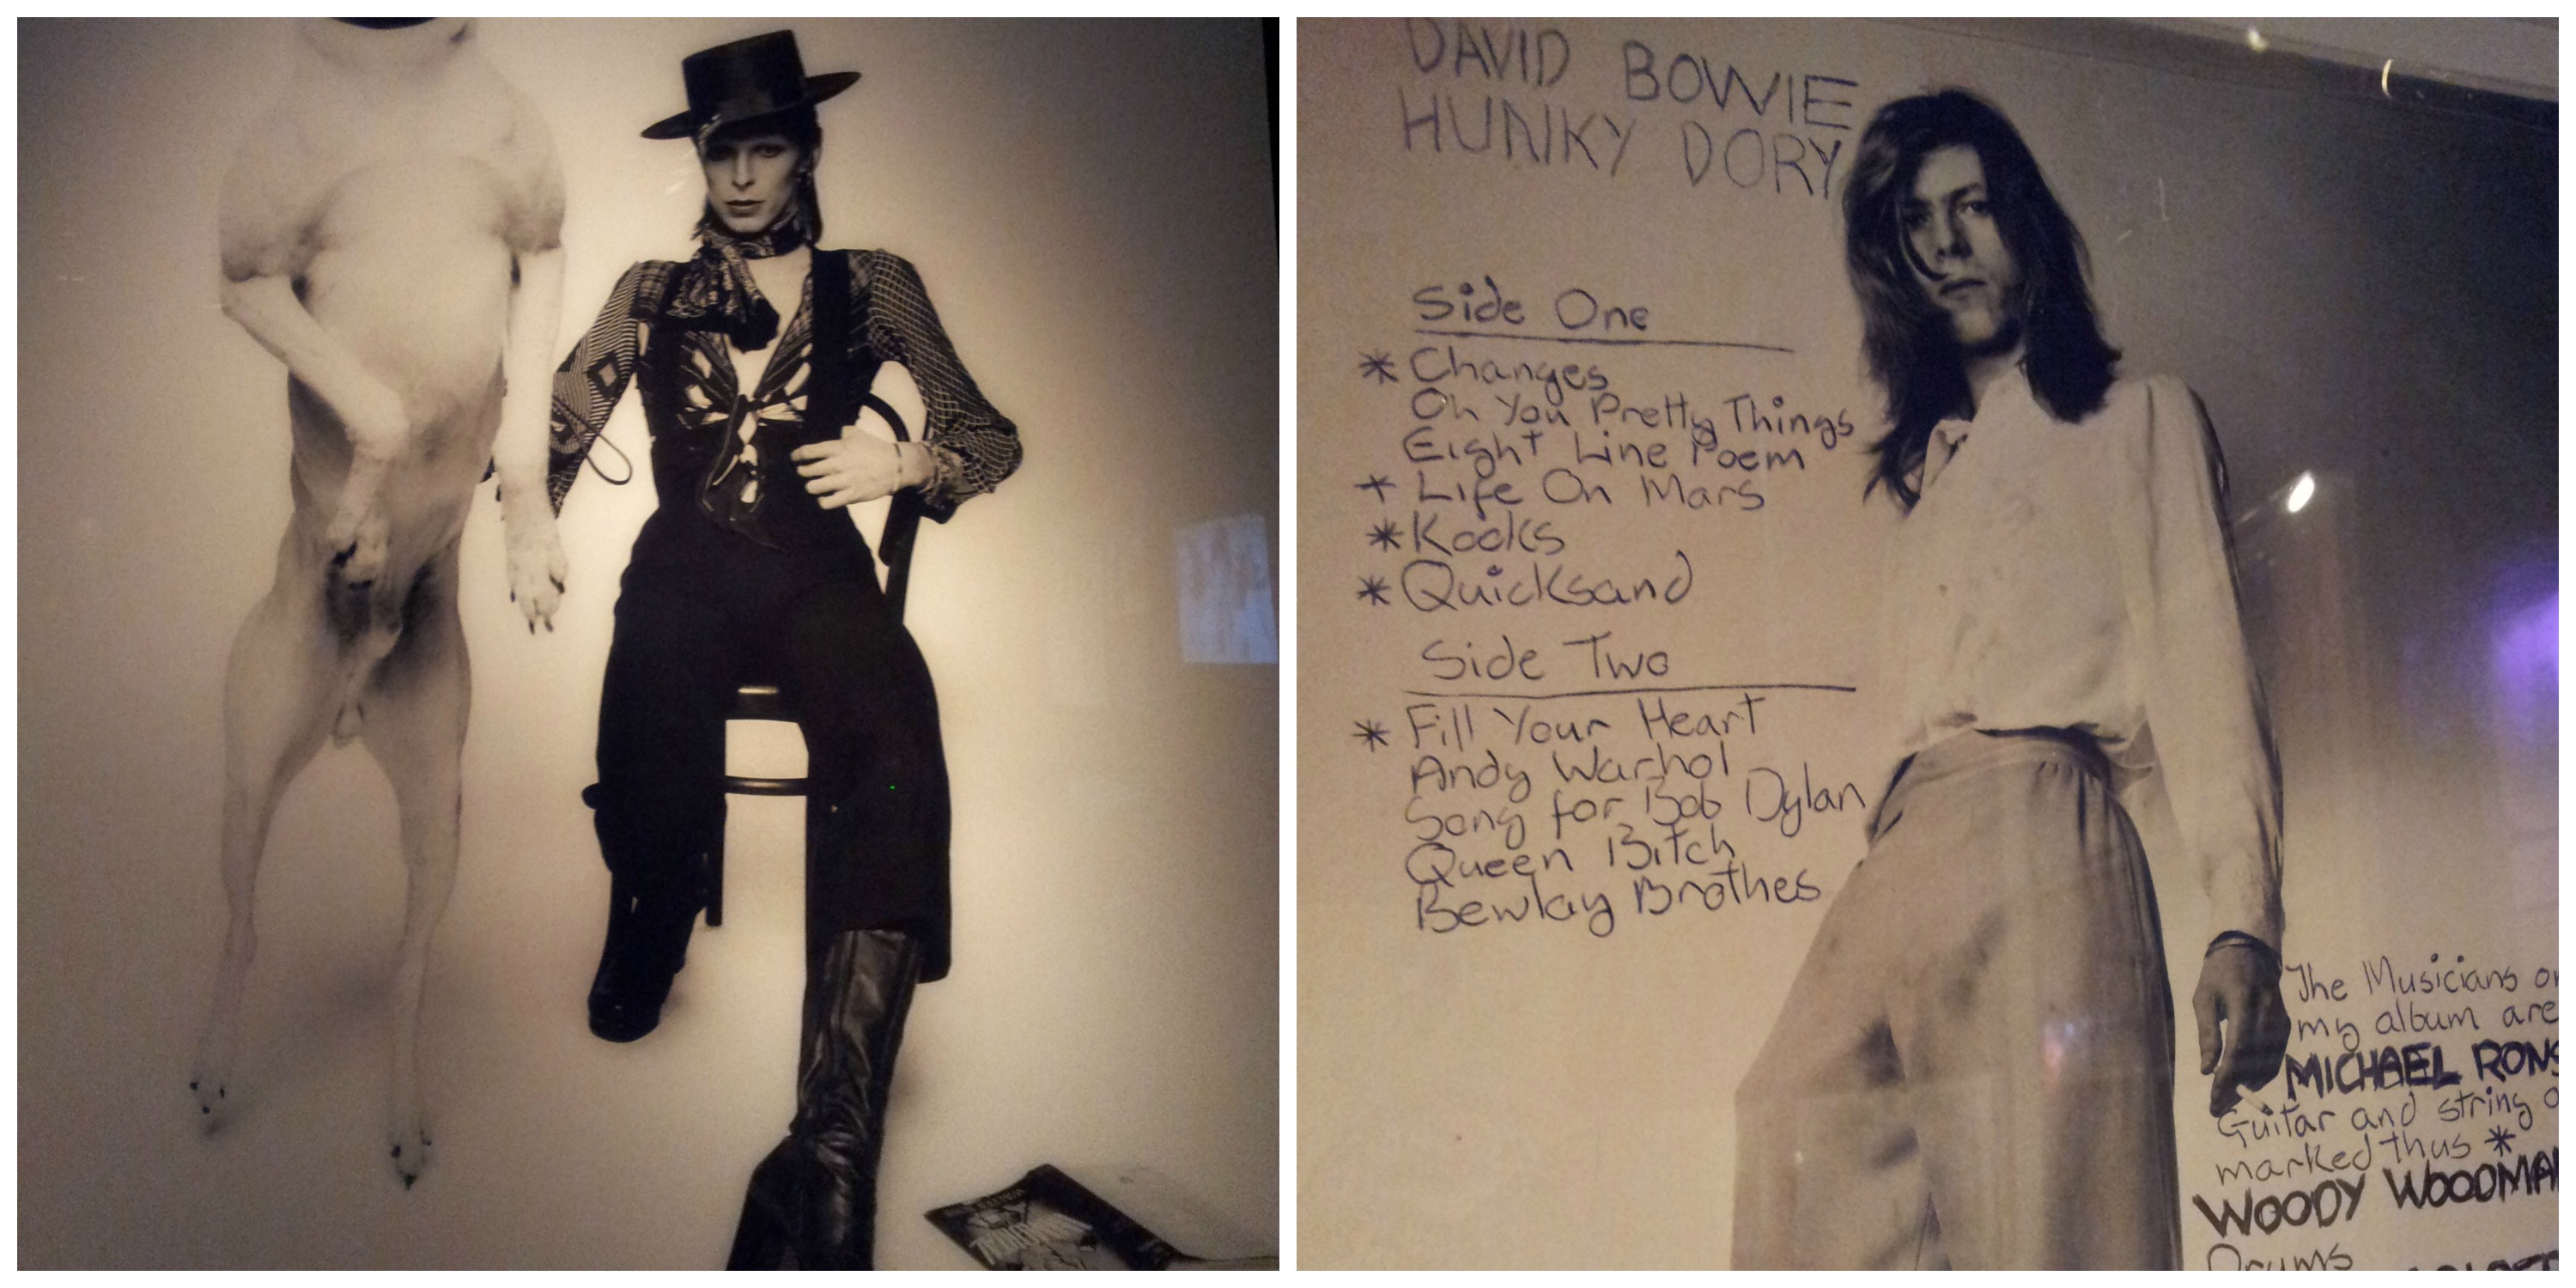 DAVID BOWIE
HUNKY DORY
Side One
* Changes
Oh You Pretty Things
Eight Line Poem
* Life On Mars
* Kooks
* Quicksand
Side Two
* Fill Your Heart
Andy Warhol
Song for Bob Dylan
Queen Bitch
Bewlay Brothes
The Musicians on
my album are
MICHAEL RONS
Guitar and string
marked thus *
WOODY WOODMA
Drums